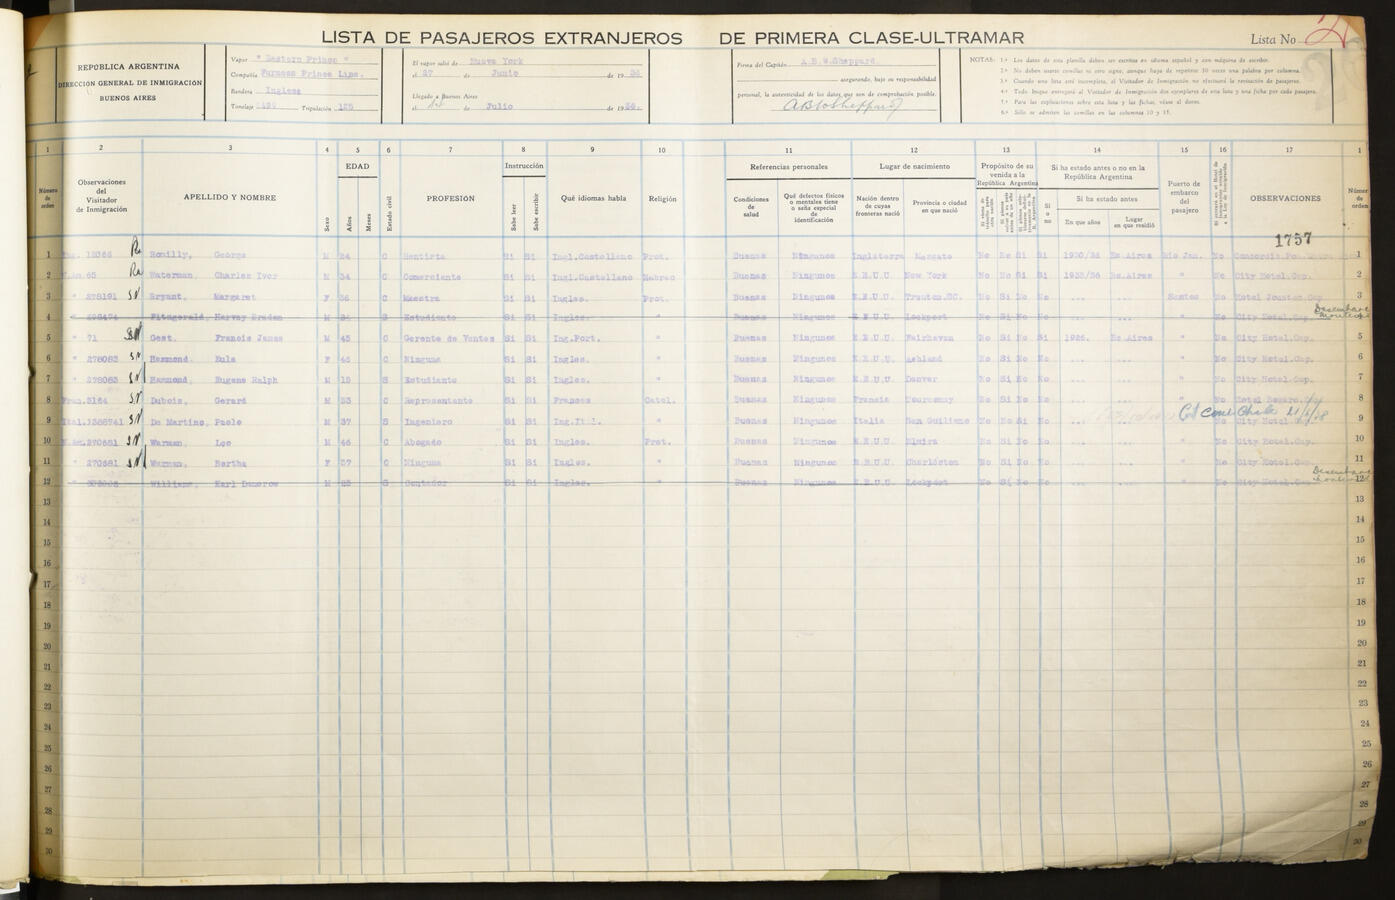 LISTA DE PASAJEROS EXTRANJEROS DE PRIMERA CLASE-ULTRAMAR
Lista No
REPÚBLICA ARGENTINA
DIRECCIÓN GENERAL DE INMIGRACIÓN
BUENOS AIRES
Vapor " Eastern Prince "
Compañía Furness Prince Line.
Bandera Inglesa
Tonelaje Tripulación 125
El vapor salió de Nueva York
el 27 de Junio de 19 36
Llegado a Buenos Aires
el de Julio de 19 36.
Firma del Capitán A.B.W.Sheppard.
asegurando, bajo su responsabilidad
personal, la autenticidad de los datos que son de comprobación posible.
NOTAS: 1.ª Los datos de esta planilla deben ser escritos en idioma español y con máquina de escribir.
2.ª No deben usarse comillas ni otro signo, aunque haya de repetirse 30 veces una palabra por columna.
3.ª Cuando una lista esté incompleta, el Visitador de Inmigración no efectuará la revisación de pasajeros.
4.ª Todo buque entregará al Visitador de Inmigración dos ejemplares de esta lista y una ficha por cada pasajero.
5.ª Para las explicaciones sobre esta lista y las fichas, véase al dorso.
6.ª Sólo se admiten las comillas en las columnas 10 y 15.
1 2 3 4 5 6 7 8 9 10 11 12 13 14 15 16 17 1
Número de orden
Observaciones del Visitador de Inmigración
APELLIDO Y NOMBRE
Sexo
EDAD
Años
Meses
Estado civil
PROFESIÓN
Instrucción
Sabe leer
Sabe escribir
Qué idiomas habla
Religión
Referencias personales
Condiciones de salud
Qué defectos físicos o mentales tiene o seña especial de identificación
Lugar de nacimiento
Nación dentro de cuyas fronteras nació
Provincia o ciudad en que nació
Propósito de su venida a la República Argentina
Si ha estado antes o no en la República Argentina
Si o no
Si ha estado antes
En que años
Lugar en que residió
Puerto de embarco del pasajero
OBSERVACIONES
Númer de orden
1757
1 Romilly, George M 24 C Rentista Si Si Ingl.Castellano Prot. Buenas Ningunos Inglaterra Margate No No Si Si 1930/34 Bs.Aires Rio Jan. No 1
2 65 Waterman, Charles Ivor M 34 C Comerciante Si Si Ingl.Castellano Hebreo Buenas Ningunos E.E.U.U. New York No No Si Si 1935/36 Bs.Aires " No City Hotel.Cap. 2
3 " 278191 Bryant, Margaret F 36 C Maestra Si Si Ingles. Prot. Buenas Ningunos E.E.U.U. No Si No No ... ... Santos No Hotel Cap 3
4 " Fitzgerald, Harvey Braden M S Estudiante Si Si Ingles. " Buenas Ningunos E.E.U.U. Lockport No Si No No ... ... " No City Hotel.Cap. Desembarc
5 " 71 Gest, Francis James M 45 C Gerente de Ventas Si Si Ing.Port. " Buenas Ningunos E.E.U.U. Fairhaven No Si No Si 1926. Bs Aires " No City Hotel.Cap. 5
6 " 278083 Hammond, Eula F 45 C Ninguna Si Si Ingles. " Buenas Ningunos E.E.U.U. Ashland No Si No No ... ... " No City Hotel.Cap. 6
7 " 278083 Hammond, Eugene Ralph M 19 S Estudiante Si Si Ingles. " Buenas Ningunos E.E.U.U Denver No Si No No ... ... " No City Hotel.Cap. 7
8 Fran.3164 Dubois, Gerard M 33 C Representante Si Si Frances Catol. Buenas Ningunos Francia No Si No No ... ... " No Hotel 8
9 Ital.1388741 De Martino, Paolo M 37 S Ingeniero Si Si Ing.Itl. " Buenas Ningunos Italia San Guiliano No No Si No " No City Hotel.Cap. 9
10 270681 Warman, Leo M 46 C Abogado Si Si Ingles. Prot. Buenas Ningunos E.E.U.U Elmira No Si No No ... ... " No City Hotel.Cap. 10
11 " 270681 Warman, Bertha F 37 C Ninguna Si Si Ingles. " Buenas Ningunos E.E.U.U Charleston No Si No No ... ... " No City Hotel.Cap. 11
12 " Williams, Karl Damerow M S Contador Si Si Ingles. " Buenas Ningunos E.E.U.U Lockport No Si No No ... ... " No City Hotel.Cap. 12
13 13
14 14
15 15
16 16
17 17
18 18
19 19
20 20
21 21
22 22
23 23
24 24
25 25
26 26
27 27
28 28
29 29
30 30